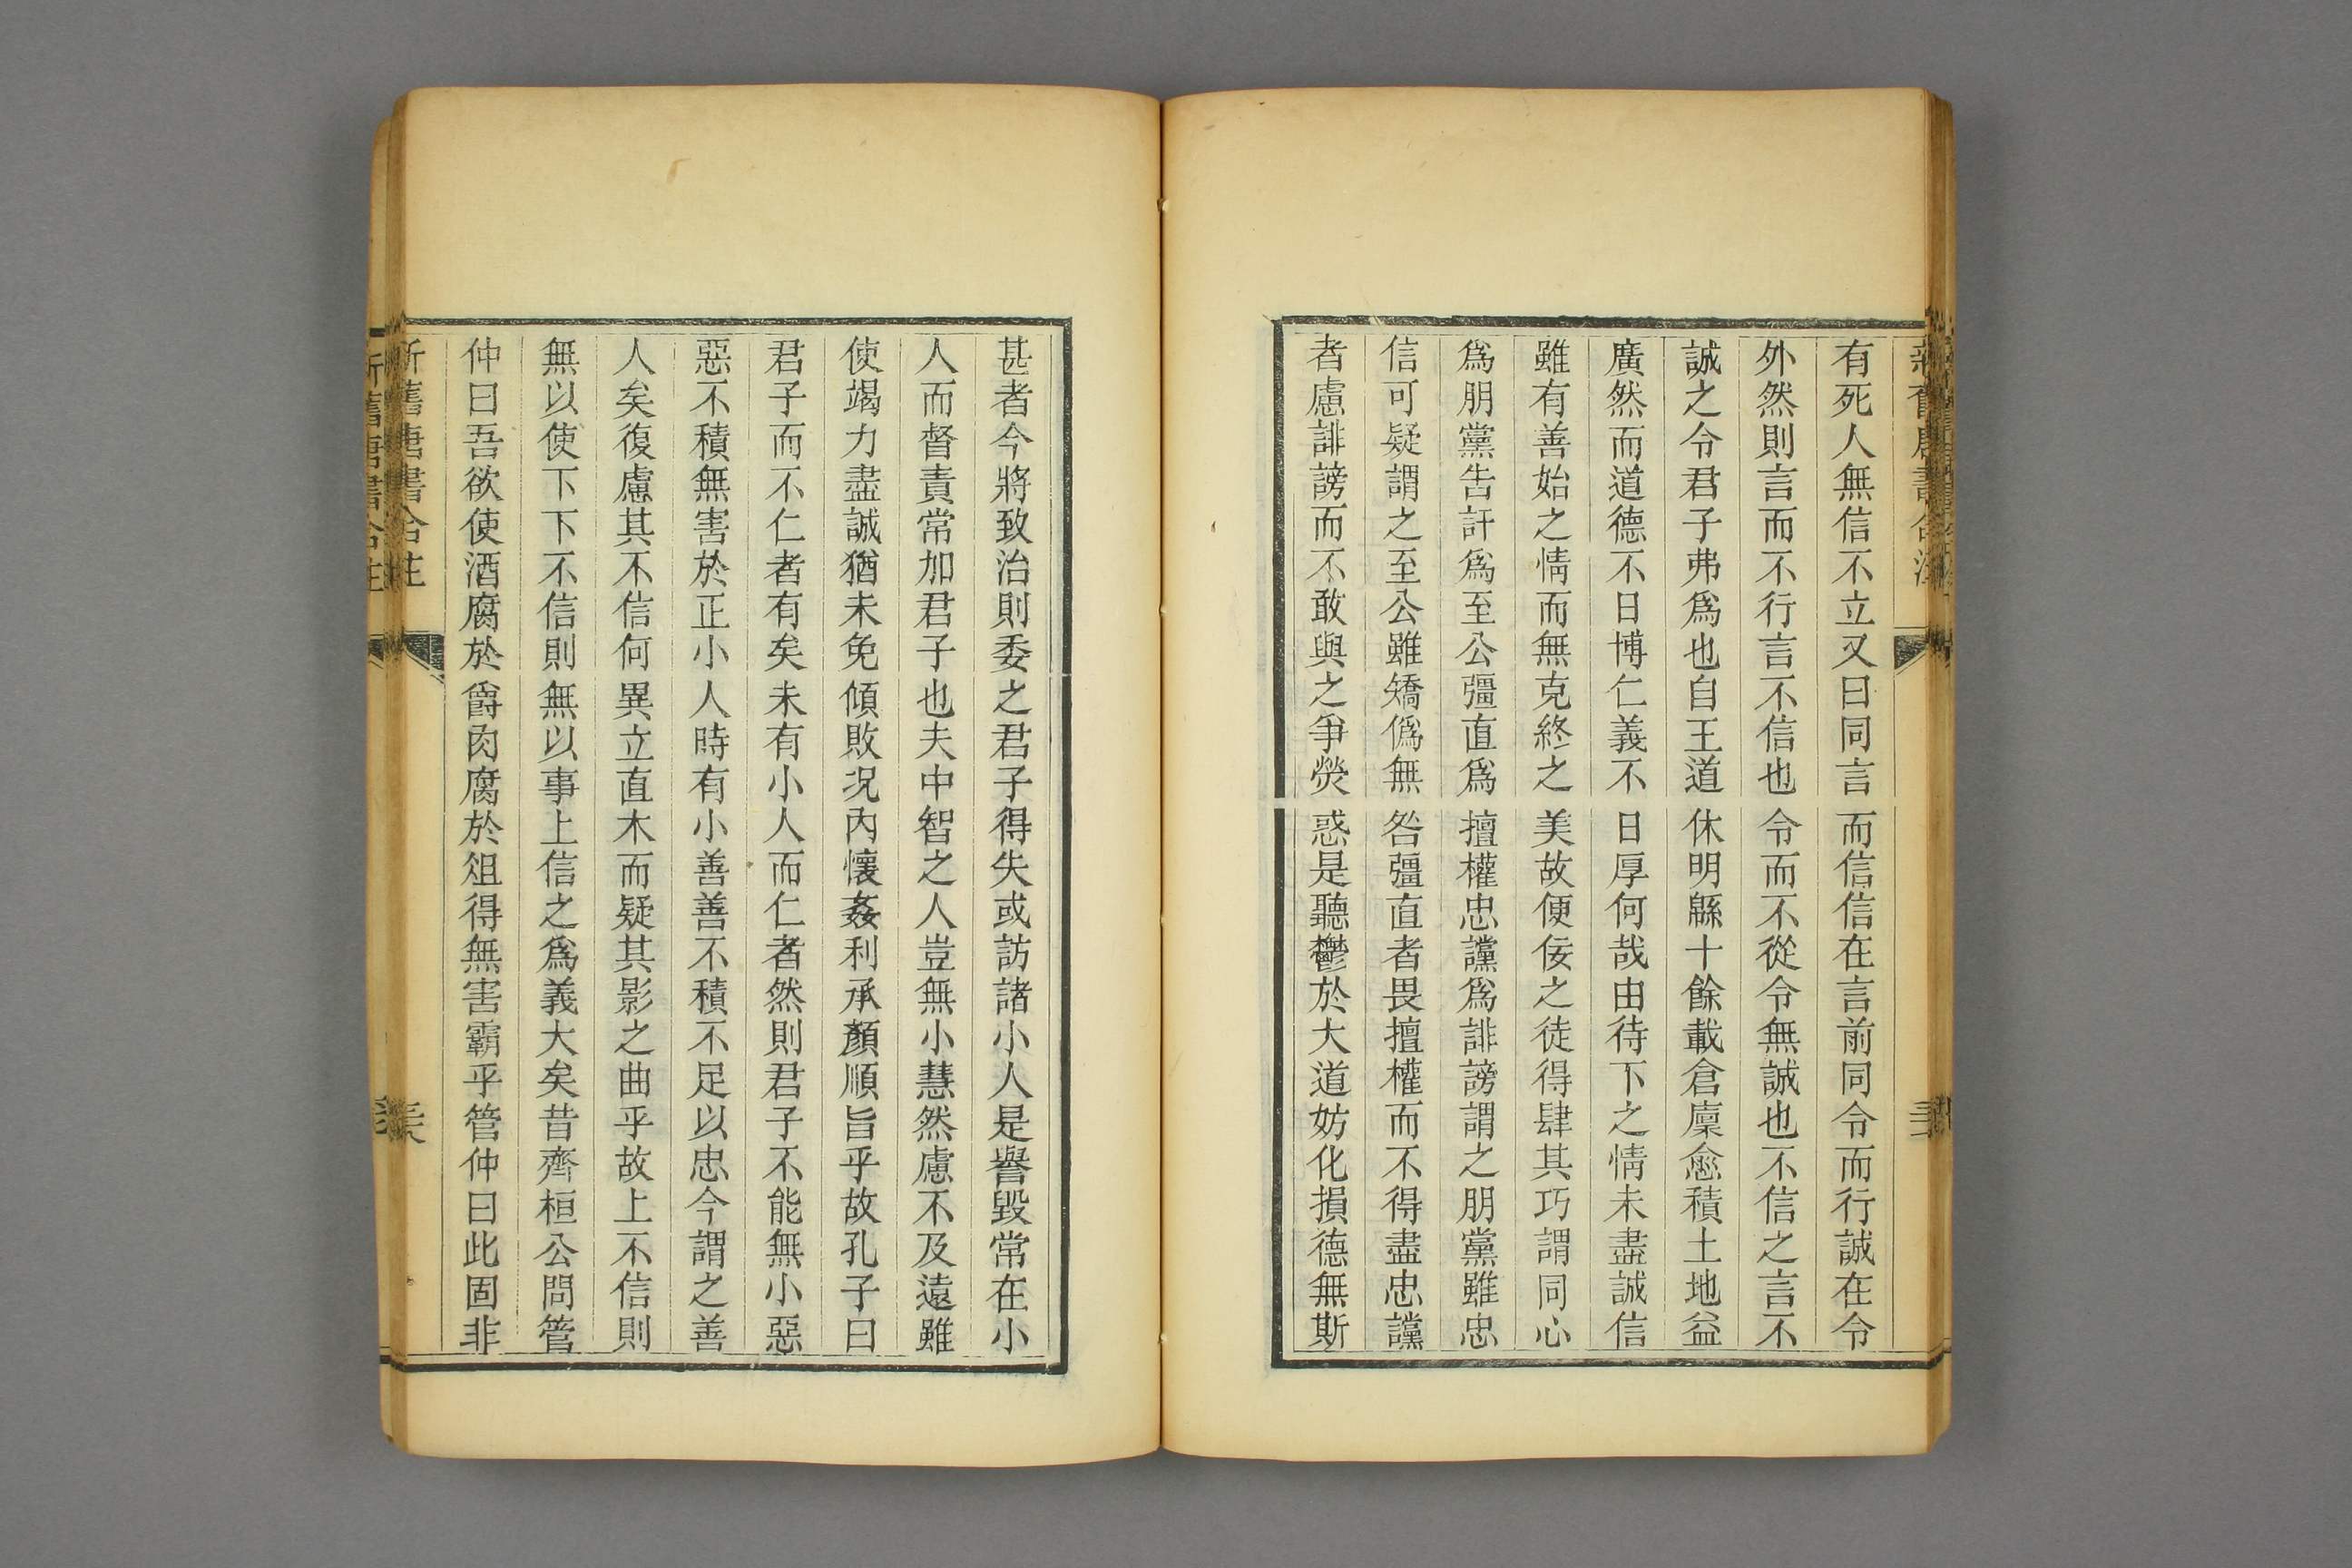 有死人無信不立又曰同言而信信在言前同令而行誠在令
外然則言而不行言不信也令而不從令無誠也不信之言不
誠之令君子弗爲也自王道休明緜十餘載倉廩愈積土地益
廣然而道德不日博仁義不日厚何哉由待下之情未盡誠信
雖有善始之情而無克終之美故便佞之徒得肆其巧謂同心
爲朋黨告訐爲至公彊直爲擅權忠讜爲誹謗謂之朋黨雖忠
信可疑謂之至公雖矯僞無咎彊直者畏擅權而不得盡忠讜
者慮誹謗而不敢與之爭熒惑是聽鬱於大道妨化損德無斯
甚者今將致治則委之君子得失或訪諸小人是譽毀常在小
人而督責常加君子也夫中智之人豈無小慧然慮不及遠雖
使竭力盡誠猶未免傾敗况內懷姦利承顏順旨乎故孔子曰
君子而不仁者有矣未有小人而仁者然則君子不能無小惡
惡不積無害於正小人時有小善善不積不足以忠今謂之善
人矣復慮其不信何異立直木而疑其影之曲乎故上不信則
無以使下下不信則無以事上信之爲義大矣昔齊桓公問管
仲曰吾欲使酒腐於爵肉腐於俎得無害霸乎管仲曰此固非
新舊唐書合注